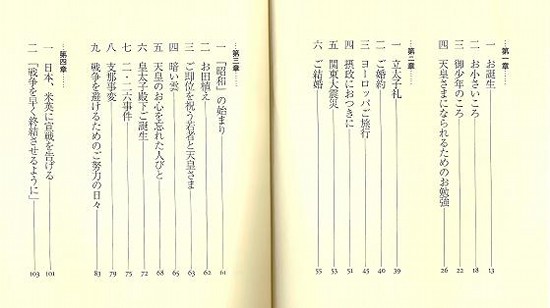 第一章
一 お誕生 13
二 お小さいころ 18
三 御少年のころ 22
四 天皇さまになられるためのお勉強 26
第二章
一 立太子礼 39
二 ご婚約 40
三 ヨーロッパご旅行 45
四 摂政におつきに 51
五 関東大震災 53
六 ご結婚 55
第三章
一 「昭和」の始まり 61
二 お田植え 62
三 ご即位を祝う若者と天皇さま 63
四 暗い雲 65
五 天皇のお心を忘れた人びと 68
六 皇太子殿下ご誕生 72
七 二・二六事件 75
八 支那事変 79
九 戦争を避けるためのご努力の日々 83
第四章
一 日本、米英に宣戦を告げる 101
二 「戦争を早く終結させるように」 103